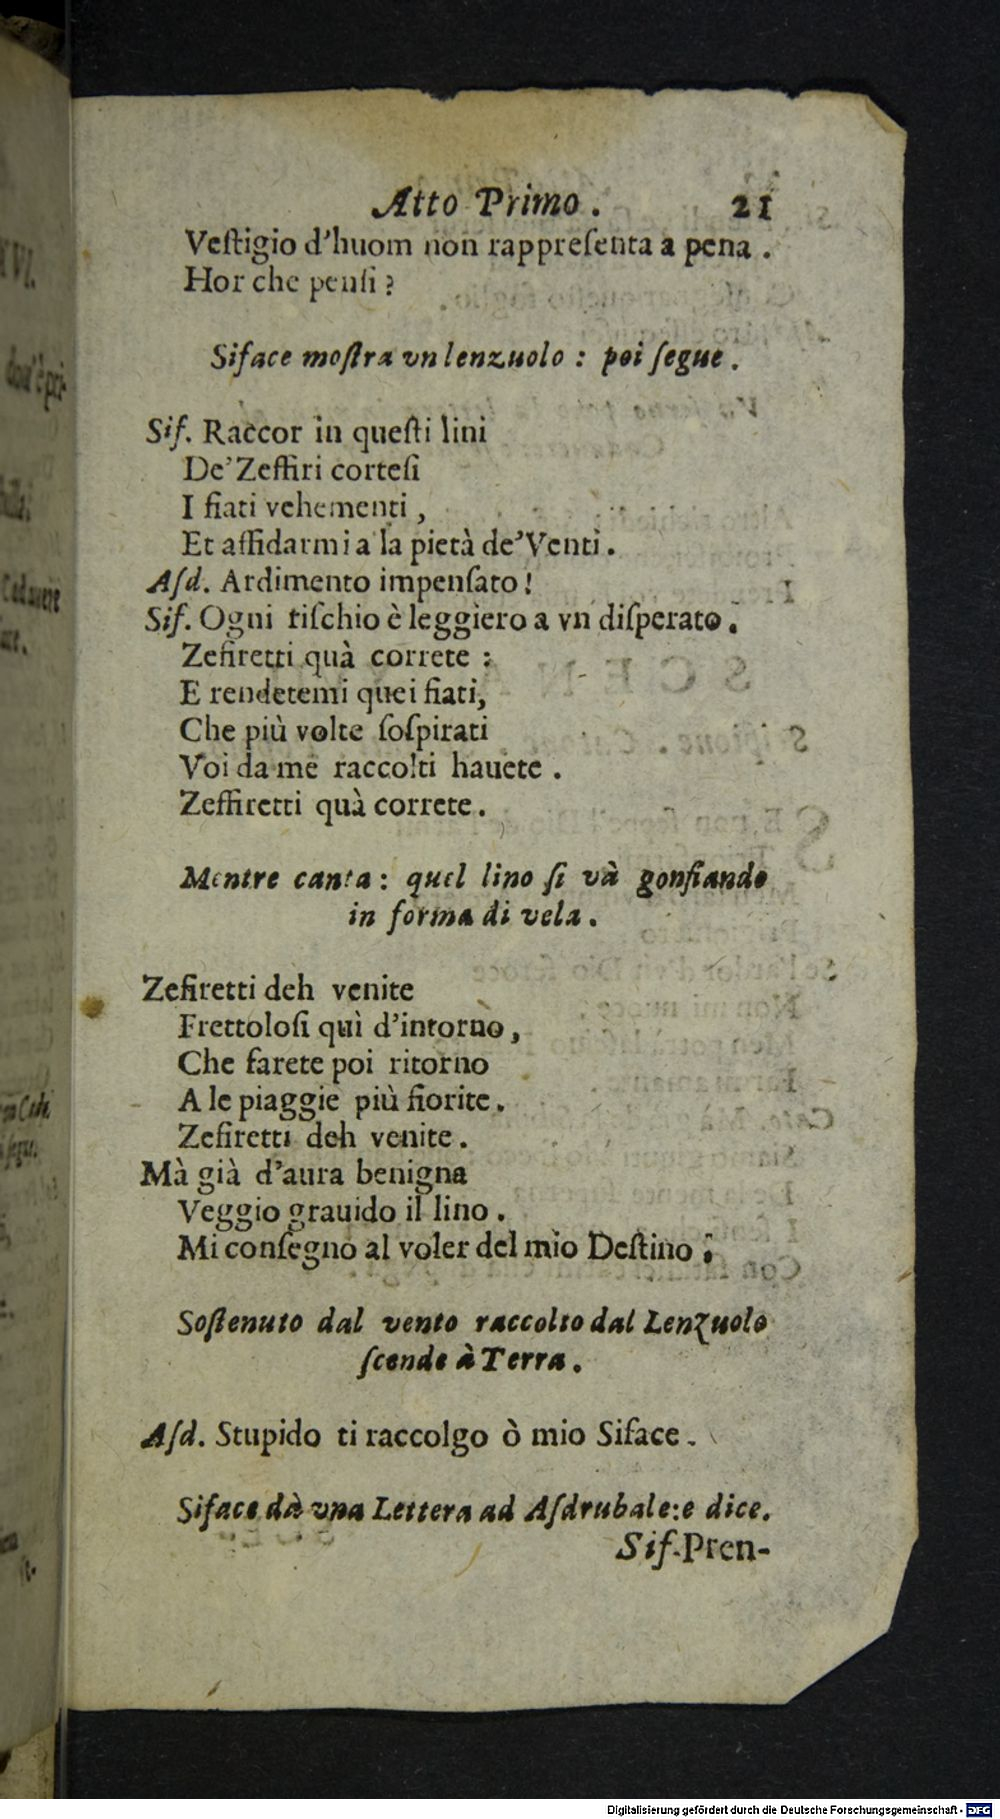 Atto Primo. 21
Veſtigio d'huom non rappreſenta a pena.
Hor che penſi?
Siface moſtra vn lenzuolo: poi ſegue.
Sif. Raccor in queſti lini
De'Zeffiri corteſi
I fiati vehementi,
Et affidarmi a la pietà de'Venti.
Aſd. Ardimento impenſato!
Sif. Ogni riſchio è leggiero a vn diſperato.
Zefiretti quà correte:
E rendetemi quei fiati,
Che più volte ſoſpirati
Voi da me raccolti hauete.
Zeffiretti quà correte.
Mentre canta: quel lino ſi và gonfiando
in forma di vela.
Zefiretti deh venite
Frettoloſi quì d'intorno,
Che farete poi ritorno
A le piaggie più fiorite.
Zefiretti deh venite.
Mà già d'aura benigna
Veggio grauido il lino.
Mi conſegno al voler del mio Deſtino.
Soſtenuto dal vento raccolto dal Lenzuolo
ſcende à Terra.
Aſd. Stupido ti raccolgo ò mio Siface.
Siface dà vna Lettera ad Aſdrubale: e dice.
Sif. Pren-
Digitalisierung gefördert durch die Deutsche Forschungsgemeinschaft - DFG